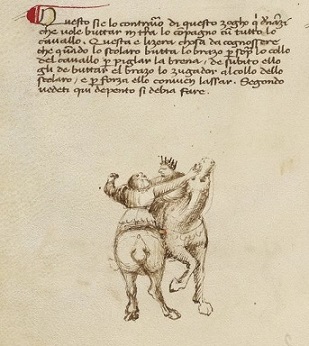 Questo si è lo contrario di questo zogho q̄ dnāzi
che vole buttar in tra lo cōpagno cū tutto lo
cavallo. Questa e lizera chosa da cognossere
che qñdo lo scolaro butta lo brazo p̄ sop̄ lo collo
del cavallo p̄ piglar la brena, de subito ello
gli de buttar el brazo lo zugador al collo dello
scolaro, e p̄ forza ello convien lassar. Segondo
vedeti qui depento si debia fare.